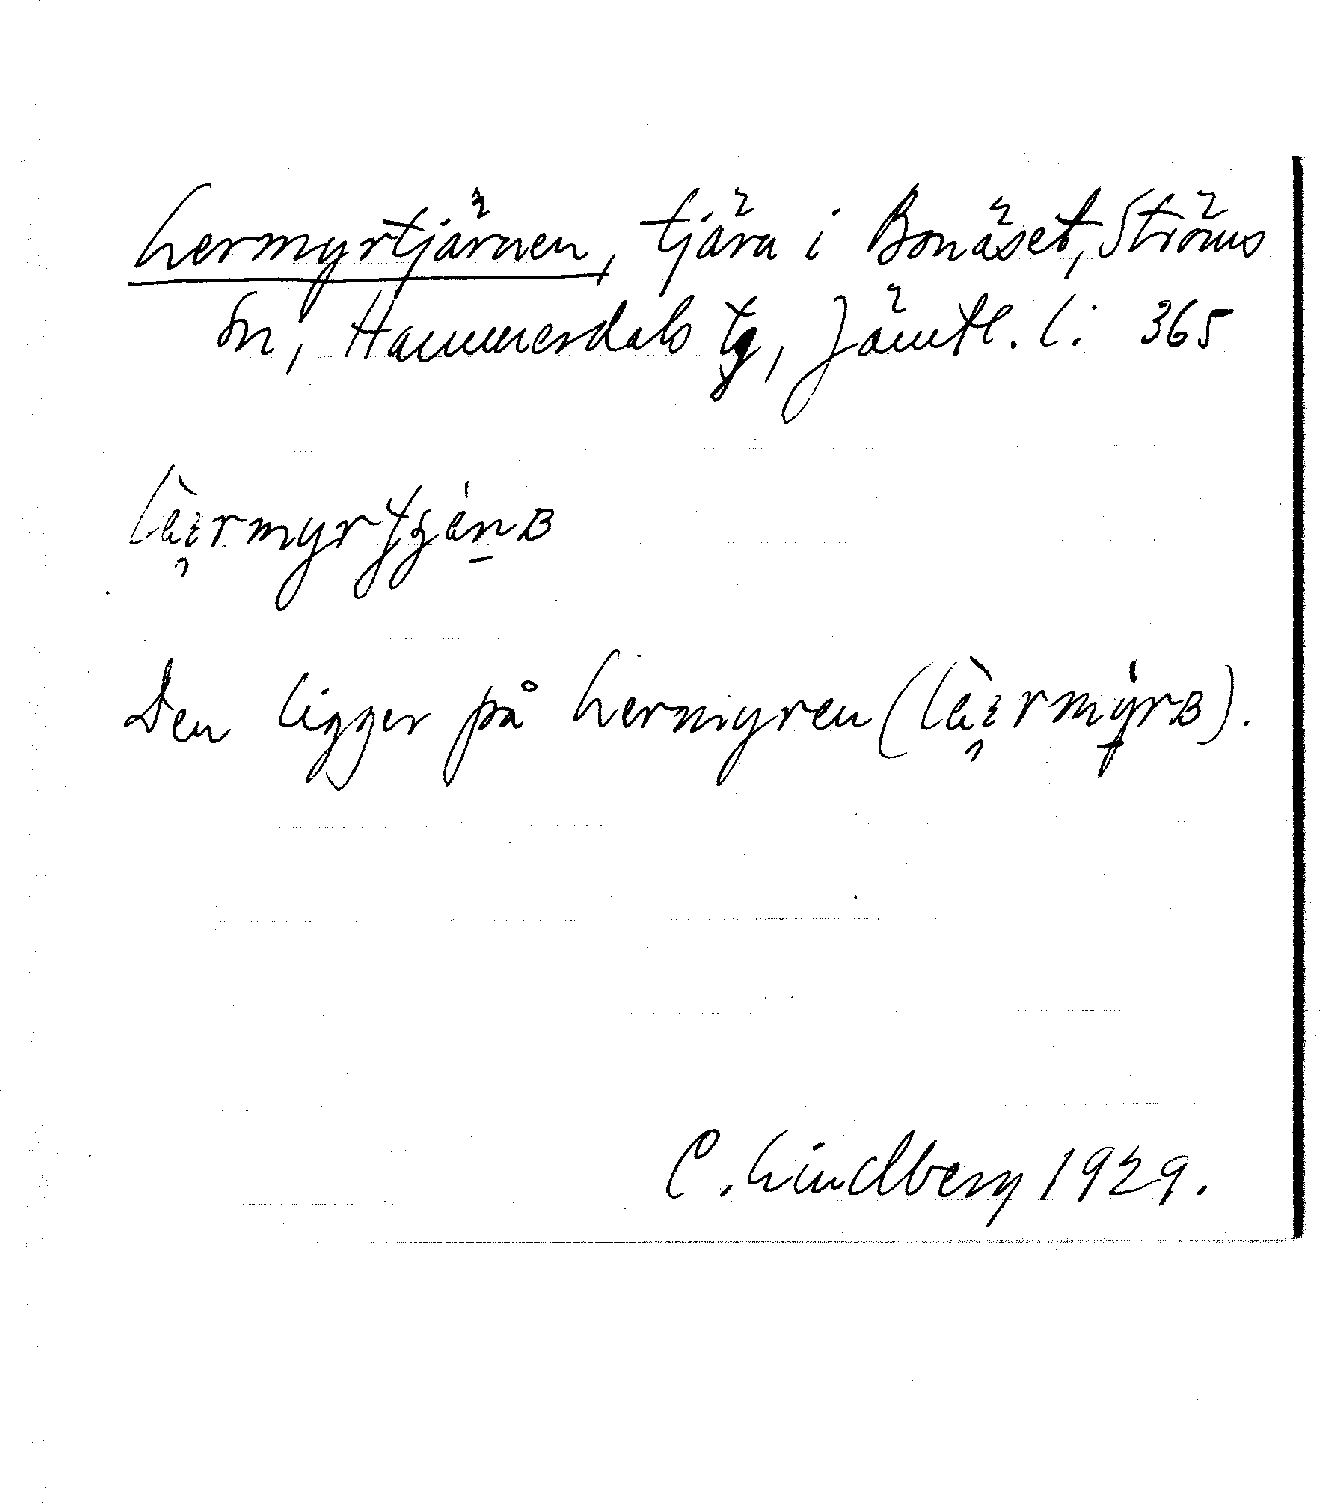 Lermyrtjärnen, tjärn i Bonäset, Ströms
sn, Hammerdals tg, Jämtl. l: 365
Den ligger på Lermyren
C. Lindberg 1929.